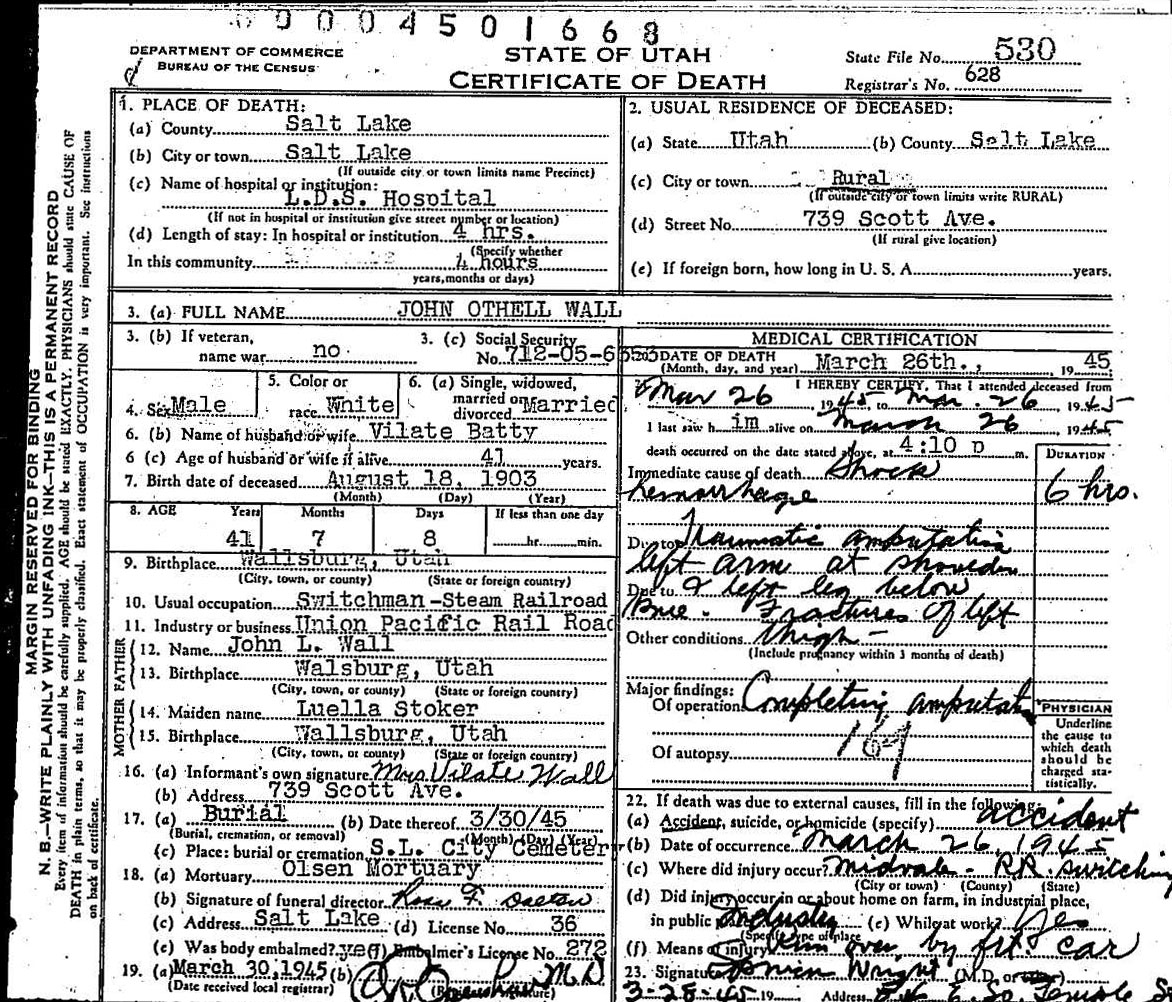 0004501668
DEPARTMENT OF COMMERCE
BUREAU OF THE CENSUS
STATE OF UTAH
CERTIFICATE OF DEATH
State File No. 530
Registrar's No. 628
MARGIN RESERVED FOR BINDING
N. B.—WRITE PLAINLY WITH UNFADING INK—THIS IS A PERMANENT RECORD
Every item of information should be carefully supplied. AGE should be stated EXACTLY. PHYSICIANS should state CAUSE OF
DEATH in plain terms, so that it may be properly classified. Exact statement of OCCUPATION is very important. See instructions
on back of certificate.
1. PLACE OF DEATH:
(a) County Salt Lake
(b) City or town Salt Lake
(If outside city or town limits name Precinct)
(c) Name of hospital or institution:
L.D.S. Hospital
(If not in hospital or institution give street number or location)
(d) Length of stay: In hospital or institution 4 hrs.
(Specify whether
In this community 4 hours
years, months or days)
2. USUAL RESIDENCE OF DECEASED:
(a) State Utah (b) County Salt Lake
(c) City or town Rural
(If outside city or town limits write RURAL)
(d) Street No. 739 Scott Ave.
(If rural give location)
(e) If foreign born, how long in U. S. A. years.
3. (a) FULL NAME JOHN OTHELL WALL
3. (b) If veteran,
name war no
3. (c) Social Security
No. 712-05-6
4. Sex Male
5. Color or
race White
6. (a) Single, widowed,
married or
divorced Married
6. (b) Name of husband or wife Vilate Batty
6 (c) Age of husband or wife if alive 41 years.
7. Birth date of deceased August 18, 1903
(Month) (Day) (Year)
8. AGE Years Months Days If less than one day
41 7 8 hr. min.
9. Birthplace Wallsburg, Utah
(City, town, or county) (State or foreign country)
10. Usual occupation Switchman-Steam Railroad
11. Industry or business Union Pacific Rail Road
FATHER
12. Name John L. Wall
13. Birthplace Walsburg, Utah
(City, town, or county) (State or foreign country)
MOTHER
14. Maiden name Luella Stoker
15. Birthplace Wallsburg, Utah
(City, town, or county) (State or foreign country)
16. (a) Informant's own signature Mrs Vilate Wall
(b) Address 739 Scott Ave.
17. (a) Burial (b) Date thereof 3/30/45
(Burial, cremation, or removal) (Month) (Day) (Year)
(c) Place: burial or cremation S.L. City Cemetery
18. (a) Mortuary Olsen Mortuary
(b) Signature of funeral director
(c) Address Salt Lake (d) License No. 36
(e) Was body embalmed? yes (f) Embalmer's License No. 272
19. (a) March 30, 1945 (b) M.D
(Date received local registrar)
MEDICAL CERTIFICATION
20. DATE OF DEATH March 26th., 1945
(Month, day, and year)
I HEREBY CERTIFY, That I attended deceased from
Mar 26, 1945 to Mar. 26, 1945
I last saw h im alive on March 26 1945
death occurred on the date stated above, at 4:10 p m.
DURATION
Immediate cause of death Shock
hemorrhage 6 hrs.
Due to Traumatic amputation
left arm at shoulder
Due to & left leg below
knee. Fractures of left
Other conditions thigh
(Include pregnancy within 3 months of death)
Major findings:
Of operation Completing amputation
169
Of autopsy
PHYSICIAN
Underline
the cause to
which death
should be
charged sta-
tistically.
22. If death was due to external causes, fill in the following:
(a) Accident, suicide, or homicide (specify) accident
(b) Date of occurrence March 26, 1945
(c) Where did injury occur? Midvale - RR switching
(City or town) (County) (State)
(d) Did injury occur in or about home on farm, in industrial place,
in public place Industry (e) While at work? yes
(Specify type of place
(f) Means of injury Run over by frt. car
23. Signature Wright (M.D. or
3-28-45 19 Address E. So. Temple S